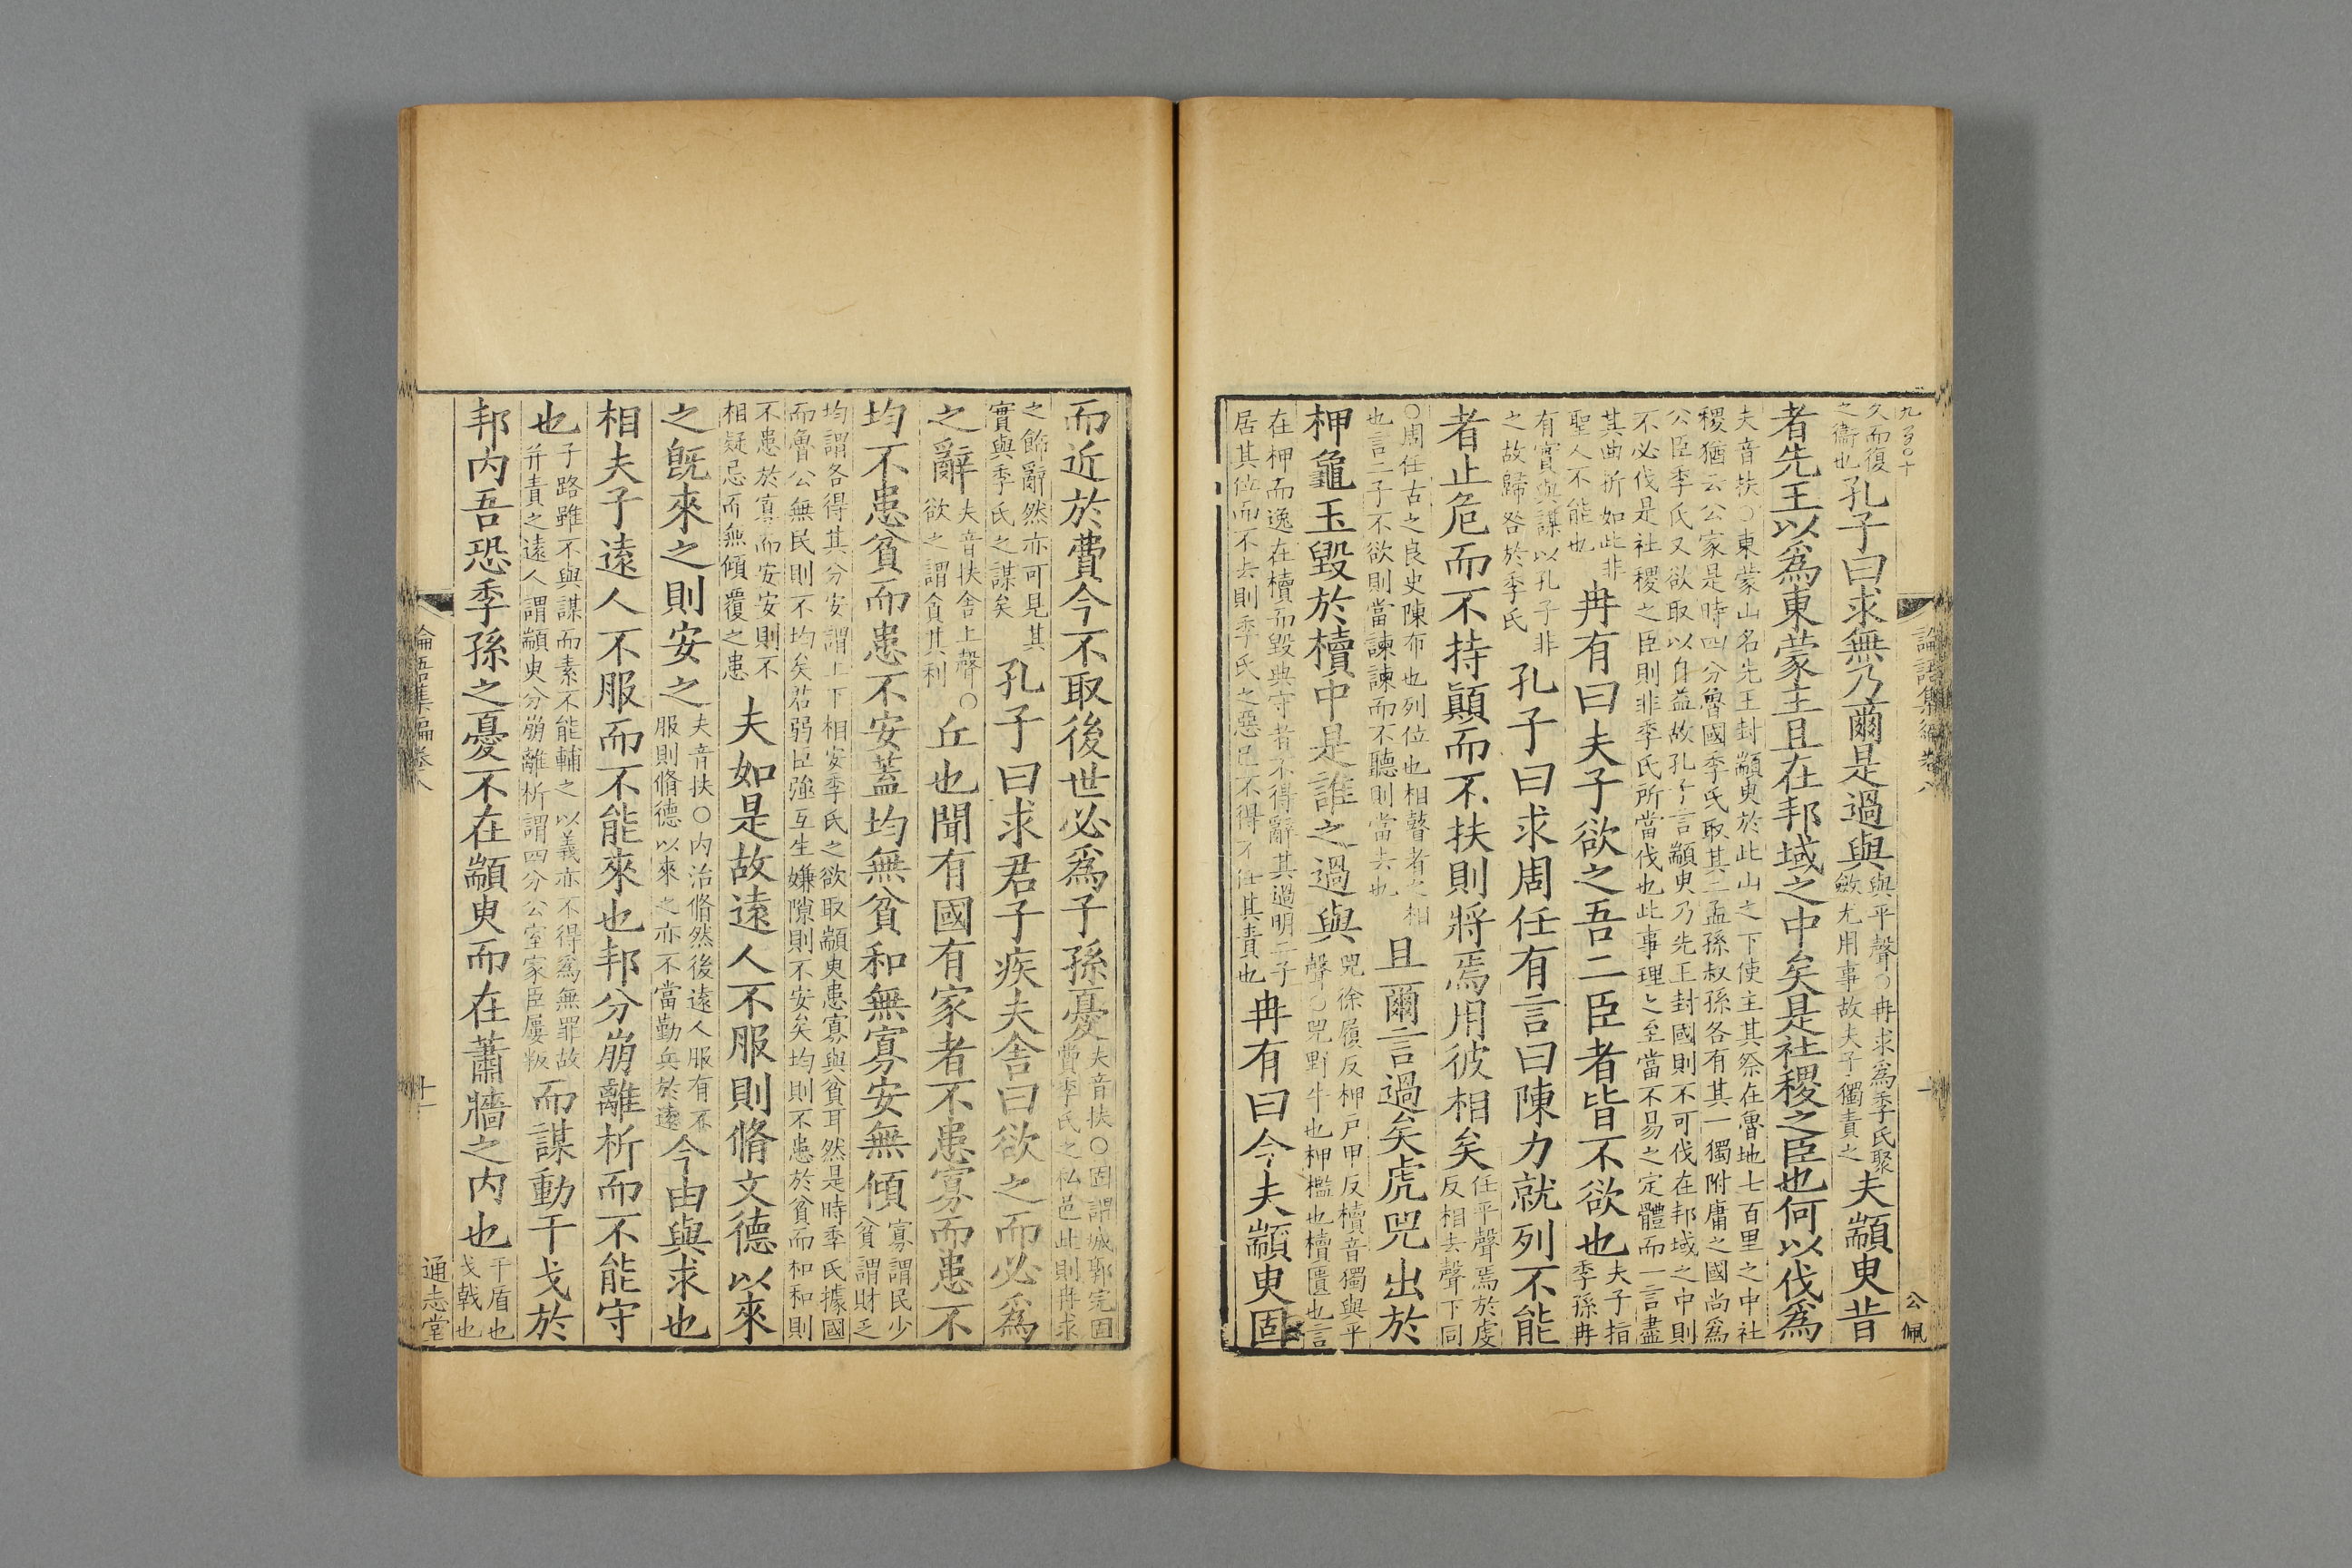 久而復之衞也孔子曰求無乃爾是過與與平聲○冉求爲季氏聚斂尤用事故夫子獨責之夫顓臾昔
者先王以爲東蒙主且在邦域之中矣是社稷之臣也何以伐爲
夫音扶○東蒙山名先王封顓臾於此山之下使主其祭在魯地七百里之中社稷猶云公家是時四分魯國季氏取其二孟孫叔孫各有其一獨附庸之國尚爲
公臣季氏又欲取以自益故孔子言顓臾乃先王封國則不可伐在邦域之中則不必伐是社稷之臣則非季氏所當伐也此事理之至當不易之定體而一言盡
其曲折如此非聖人不能也冉有曰夫子欲之吾二臣者皆不欲也夫子指季孫冉
有實與謀以孔子非之故歸咎於季氏孔子曰求周任有言曰陳力就列不能
者止危而不持顚而不扶則將焉用彼相矣任平聲焉於虔反相去聲下同
○周任古之良史陳布也列位也相瞽者之相也言二子不欲則當諫諫而不聽則當去也且爾言過矣虎兕出於
柙龜玉毀於櫝中是誰之過與兕徐履反柙戶甲反櫝音獨與平聲○兕野牛也柙檻也櫝匱也言
在柙而逸在櫝而毀典守者不得辭其過明二子居其位而不去則季氏之惡已不得不任其責也冉有曰今夫顓臾固
論語集編卷八
公佩
而近於費今不取後世必爲子孫憂夫音扶○固謂城郭完固費季氏之私邑此則冉求
之飾辭然亦可見其實與季氏之謀矣孔子曰求君子疾夫舍曰欲之而必爲
之辭夫音扶舍上聲○欲之謂貪其利丘也聞有國有家者不患寡而患不
均不患貧而患不安蓋均無貧和無寡安無傾寡謂民少貧謂財乏
均謂各得其分安謂上下相安季氏之欲取顓臾患寡與貧耳然是時季氏據國而魯公無民則不均矣君弱臣強互生嫌隙則不安矣均則不患於貧而和和則
不患於寡而安安則不相疑忌而無傾覆之患夫如是故遠人不服則脩文德以來
之旣來之則安之夫音扶○內治脩然後遠人服有不服則脩德以來之亦不當勤兵於遠今由與求也
相夫子遠人不服而不能來也邦分崩離析而不能守
也子路雖不與謀而素不能輔之以義亦不得爲無罪故幷責之遠人謂顓臾分崩離析謂四分公室家臣屢叛而謀動干戈於
邦內吾恐季孫之憂不在顓臾而在蕭牆之內也干盾也戈戟也
論語集編卷八
十一
通志堂